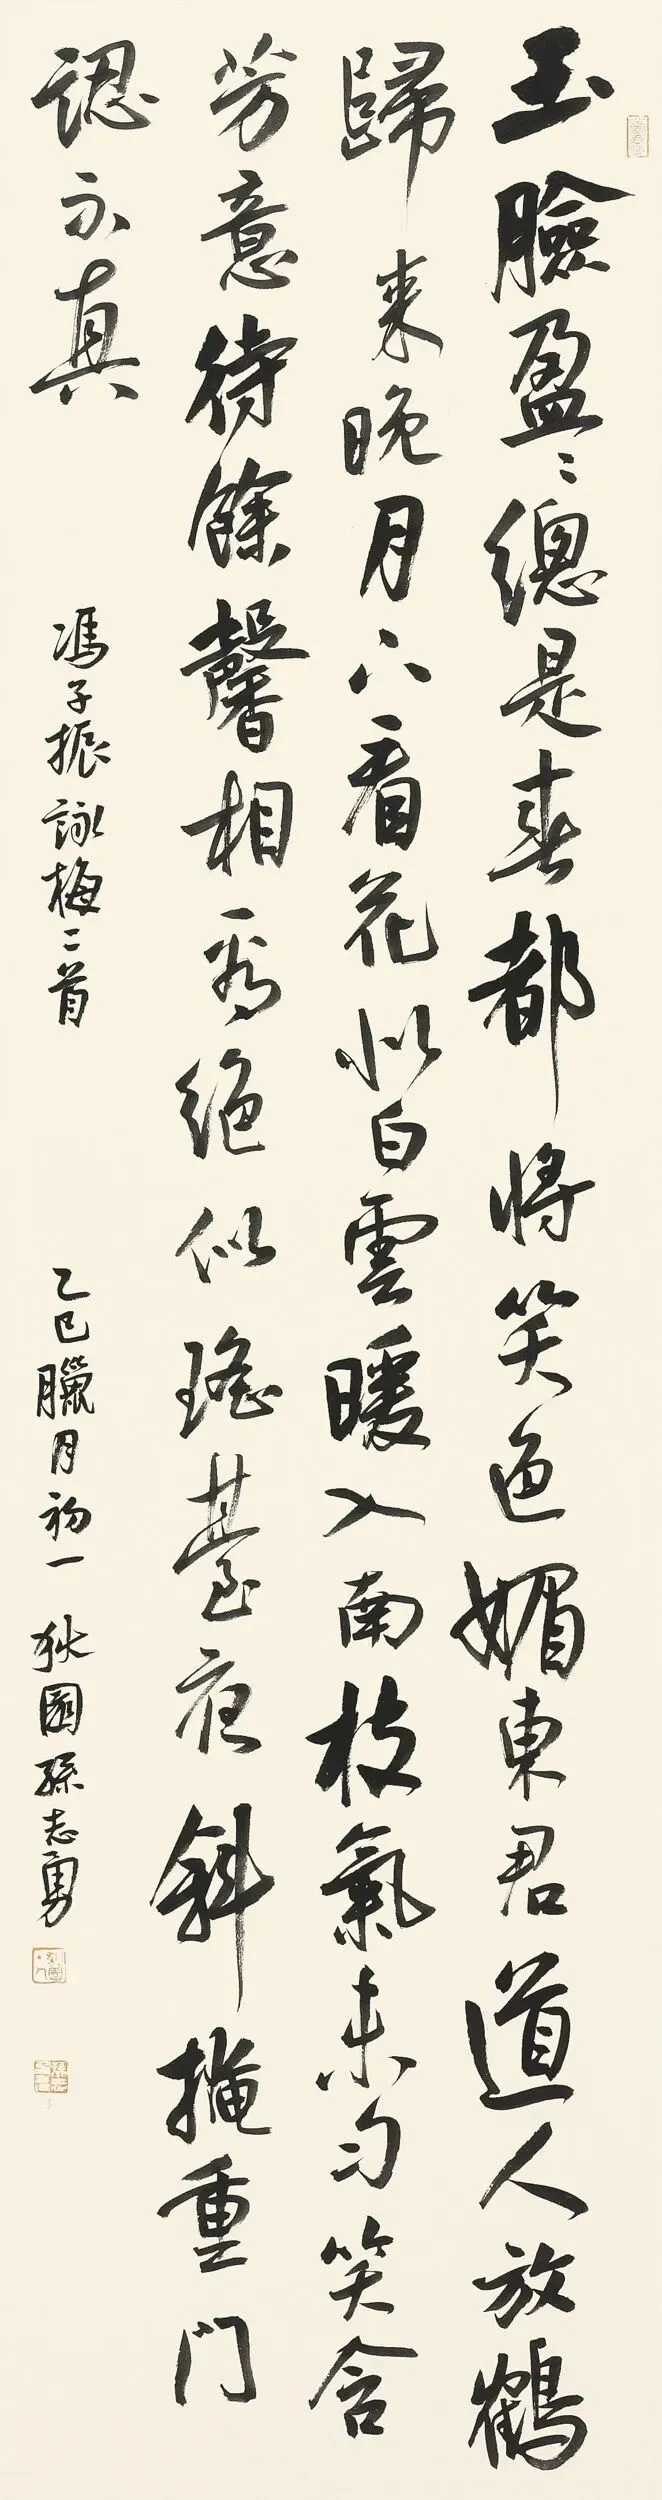 玉臉盈〻總是春都將笑色媚東君道人放鶴
歸来晚月下看花似白雲暖入南枝氣未勻笑含
芳意待餘馨相看絶似瑤臺夜斜掩重門
認不真
馮子振詠梅二首
乙巳臘月初一 狄園孫志勇